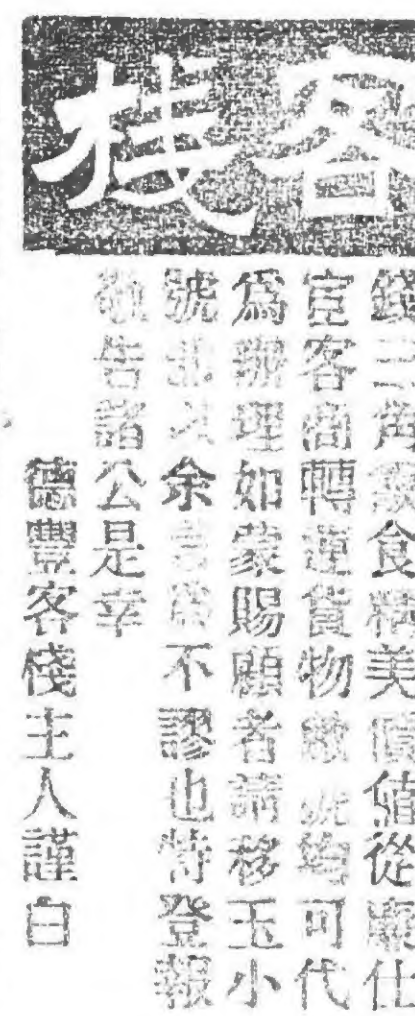 客棧
錢三角飲食精美價值從廉仕
宦客商轉運貨物敝號均可代
為辦理如蒙賜顧者請移玉小
號余不謬也特登報
敬告諸公是幸
德豐客棧主人謹白